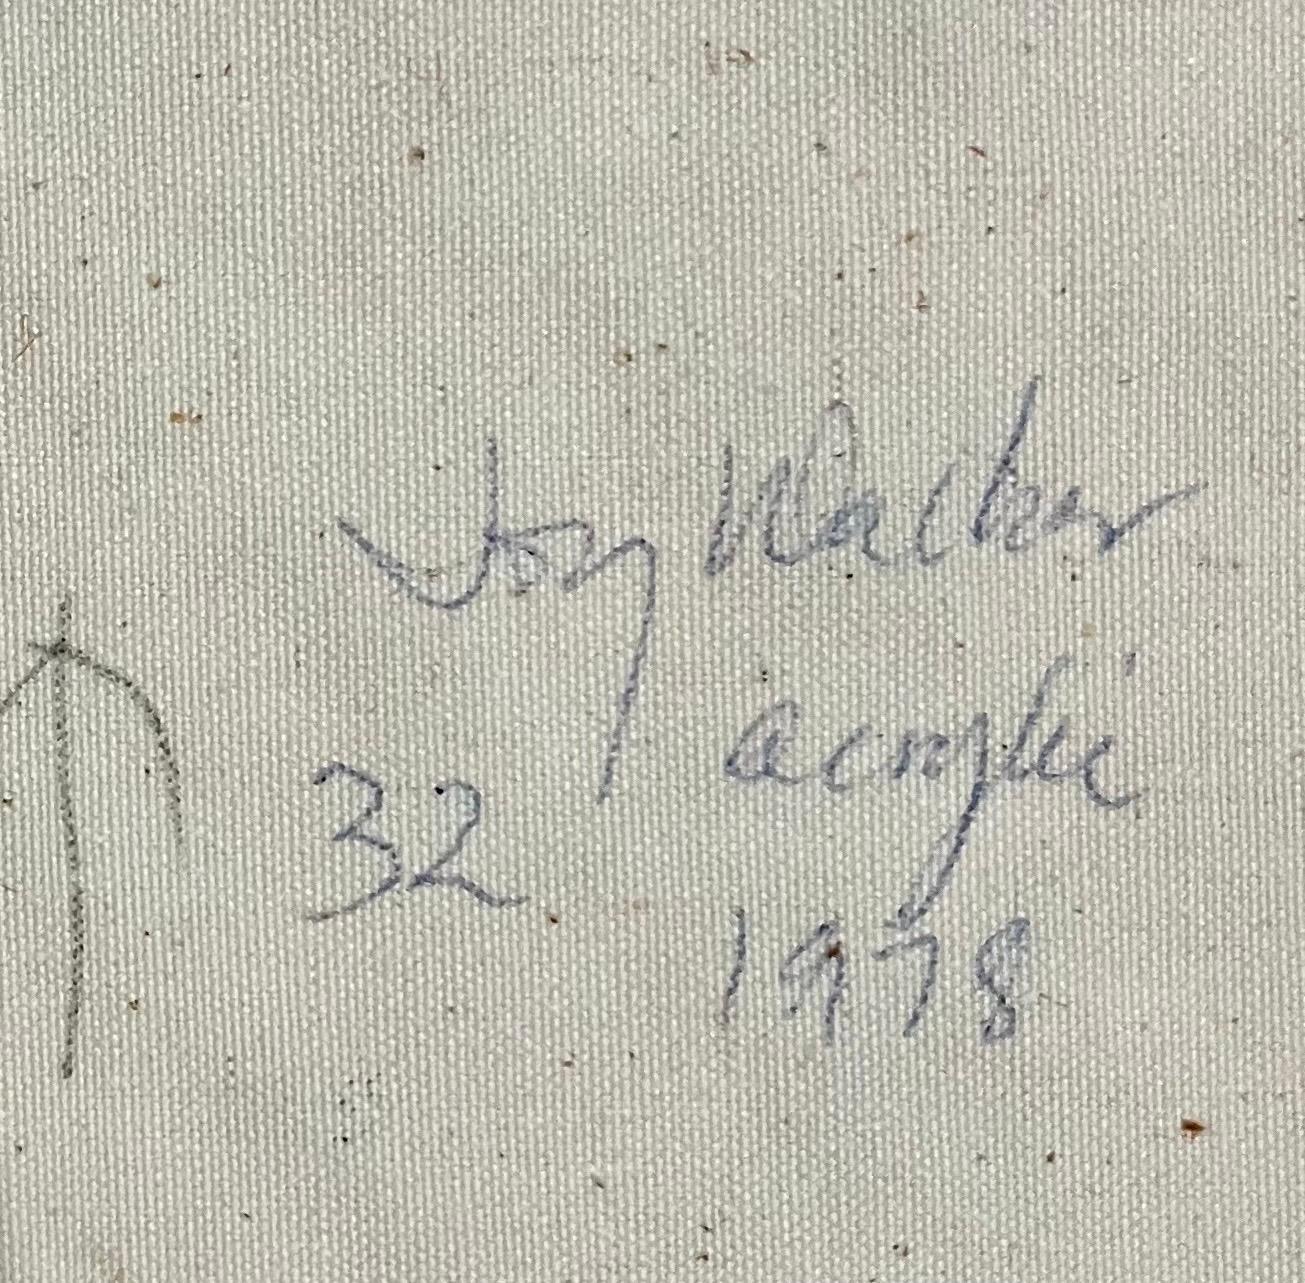 Joy Walker
acrylic
32
1978